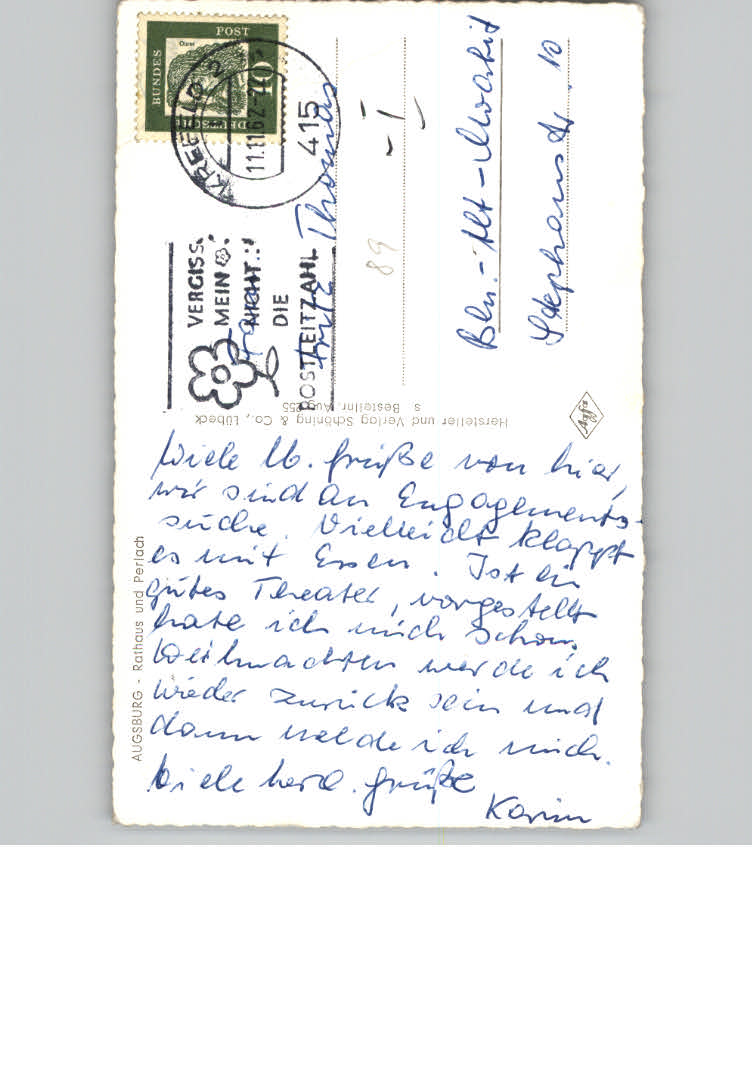 DEUTSCHE
BUNDES
POST
Dürer
10
KREFELD 2
11.11.62-24
415
VERGISS
MEIN
NICHT
DIE
POSTLEITZAHL
Fritz Thomas
- I -
Bln.-Alt-Moabit
Stephanstr. 10
89
Hersteller und Verlag Schöning & Co., Lübeck
s Bestellnr. Aug 255
AUGSBURG - Rathaus und Perlach
Viele lb. Grüße von hier,
wir sind an Engagements-
suche. Vielleicht klappt
es mit Essen. Ist ein
gutes Theater, vorgestellt
habe ich mich schon.
Weihnachten werde ich
wieder zurück sein und
dann melde ich mich.
Viele herzl. Grüße
Karin